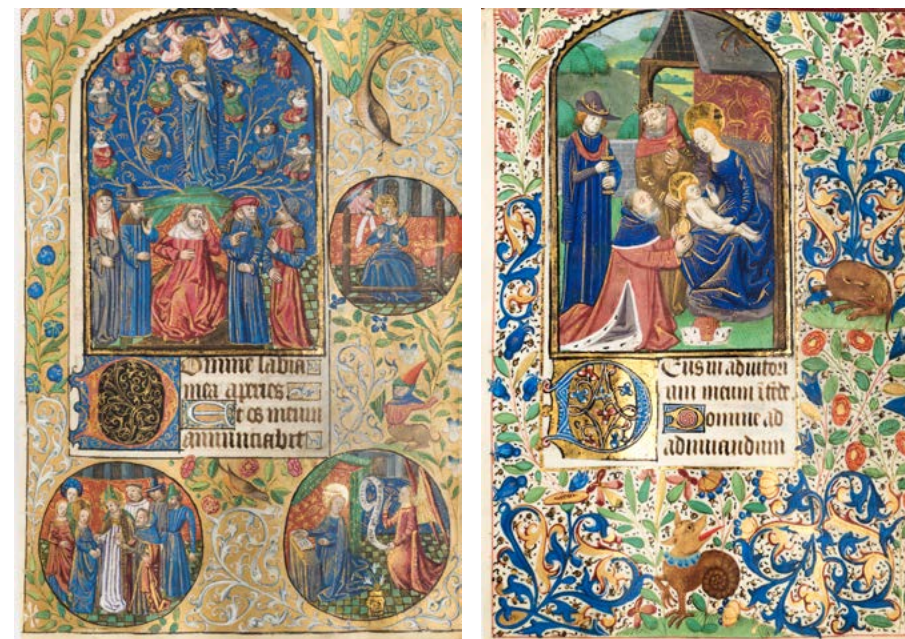 Domine labia
mea aperies
Et os meum
annunciabit
Deus in adiutori
um meum ītēde
Domine ad
adiuuandum